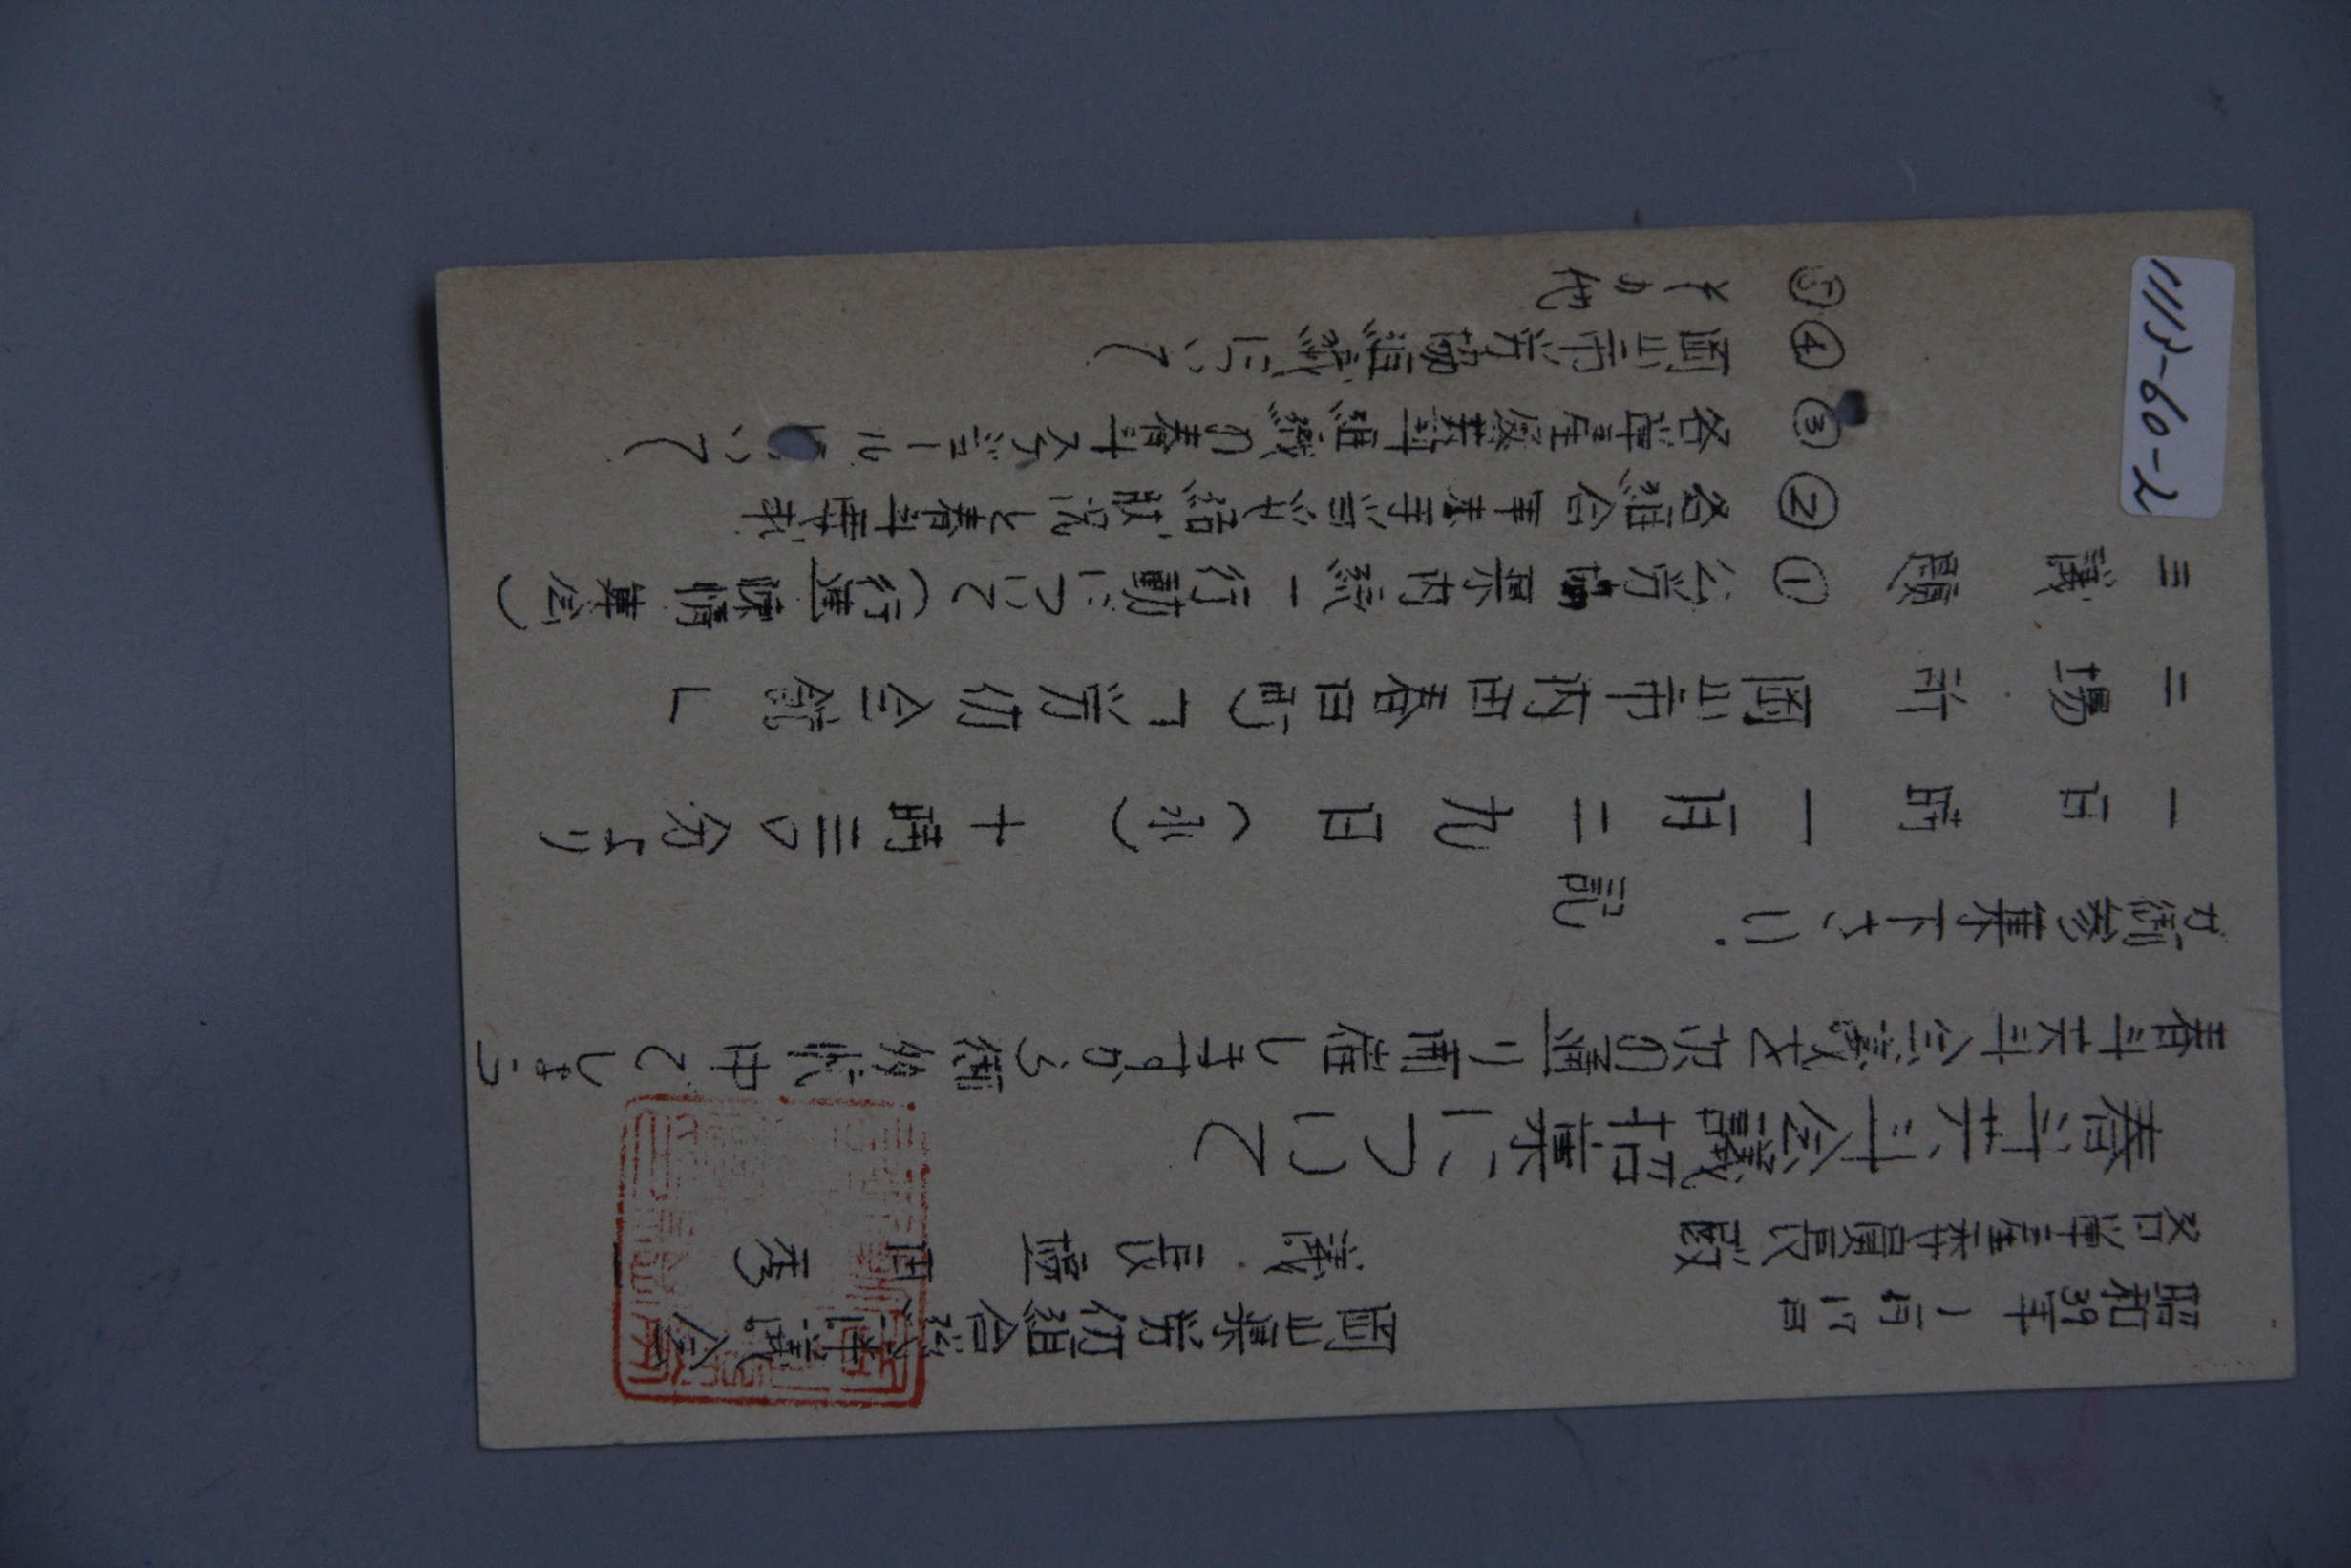 昭和39年1月17日
岡山県労仂組合総評議会
各単産委員長殿
議長
春斗共斗会議招集について
春斗共斗会議を次の通り開催しますから御多忙中でしょう
が御参集下さい.
記
一 日時 一月二九日(水)十時三〇分より
二 場所 岡山市内田春日町「労仂会館」
三 議題 ①公労協県内統一行動について(行進陳情集会)
②各組合年末手当妥結状況と春斗要求
③各単産共斗組織の春斗スケジュールについて
④岡山市労協組織について
⑤その他
1113-60-2